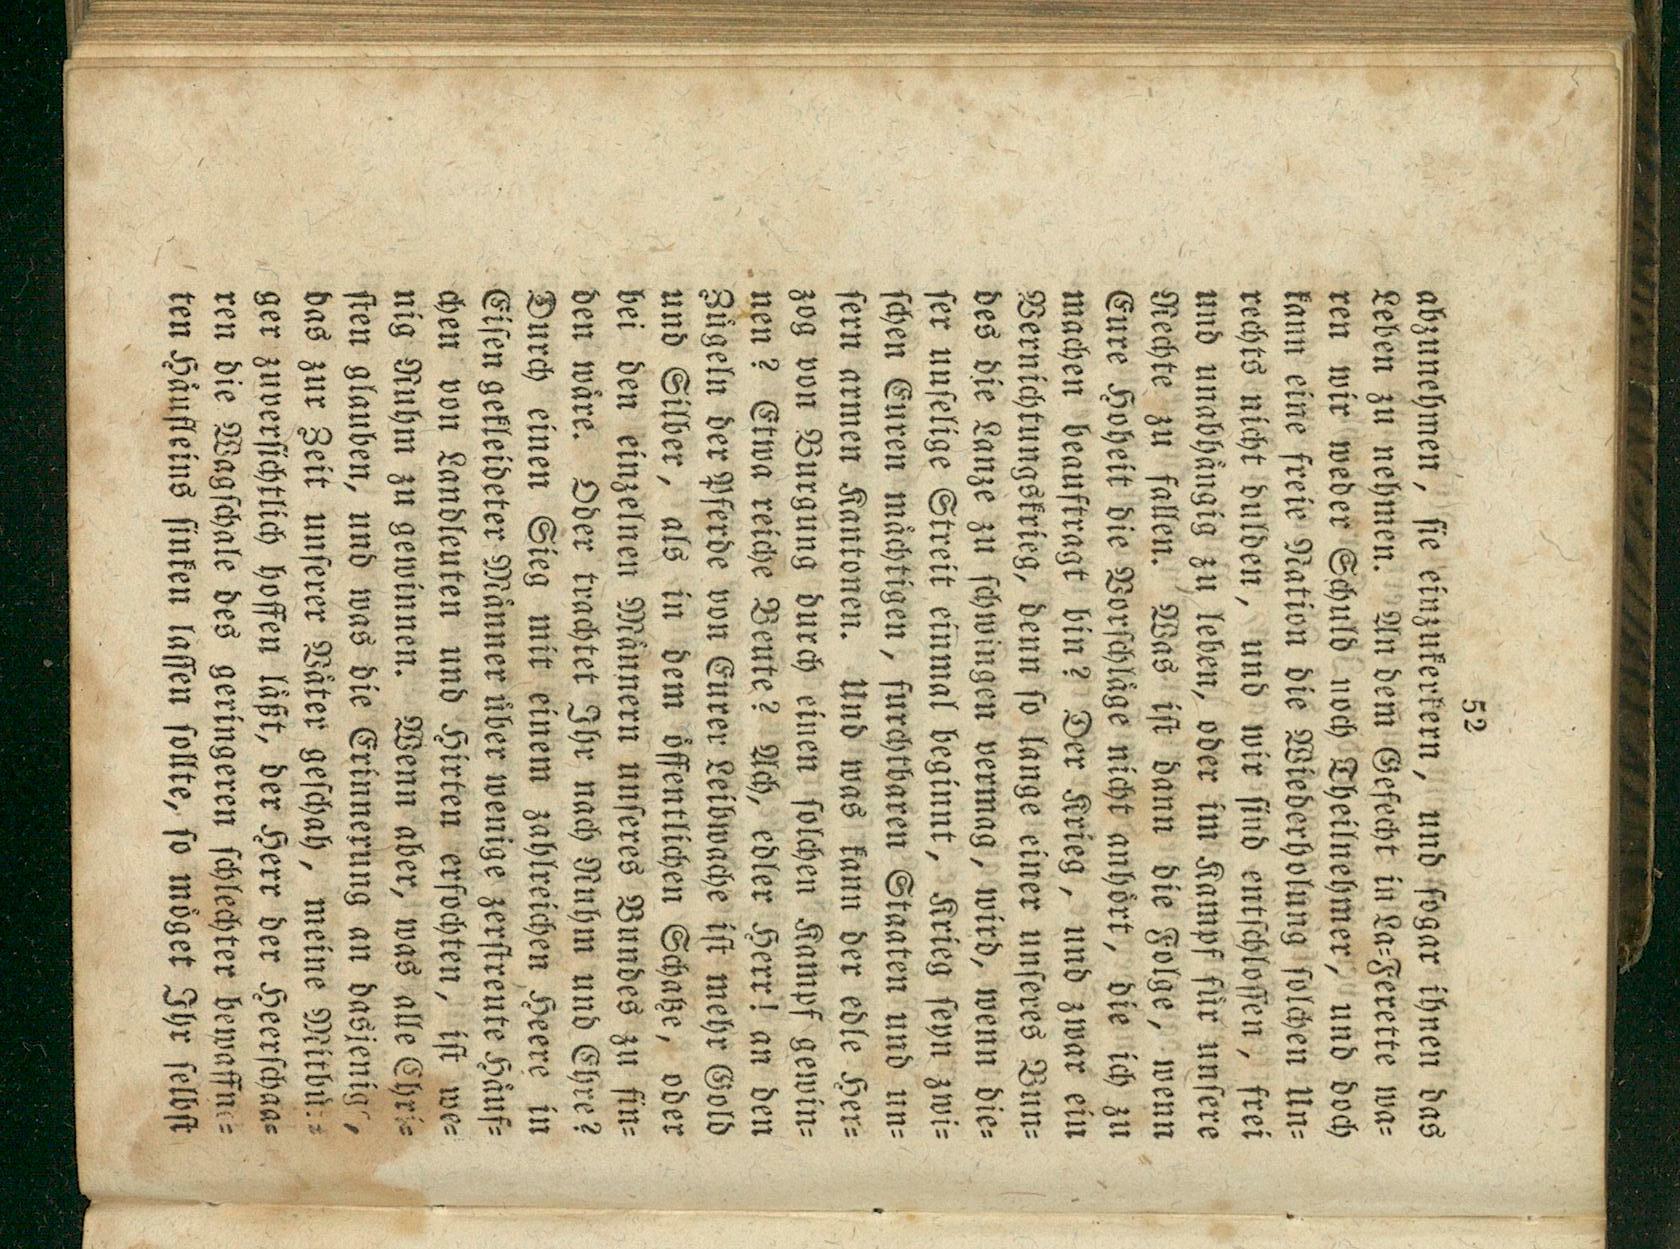 52
abzunehmen, ſie einzukerkern, und ſogar ihnen das
Leben zu nehmen. An dem Gefecht in La=Ferette wa=
ren wir weder Schuld noch Theilnehmer, und doch
kann eine freie Nation die Wiederholung ſolchen Un=
rechts nicht dulden, und wir ſind entſchloſſen, frei
und unabhängig zu leben, oder im Kampf für unſere
Rechte zu fallen. Was iſt dann die Folge, wenn
Eure Hoheit die Vorſchläge nicht anhört, die ich zu
machen beauftragt bin? Der Krieg, und zwar ein
Vernichtungskrieg, denn ſo lange einer unſeres Bun=
des die Lanze zu ſchwingen vermag, wird, wenn die=
ſer unſelige Streit einmal beginnt, Krieg ſeyn zwi=
ſchen Euren mächtigen, furchtbaren Staaten und un=
ſern armen Kantonen. Und was kann der edle Her=
zog von Burgund durch einen ſolchen Kampf gewin=
nen? Etwa reiche Beute? Ach, edler Herr! an den
Zügeln der Pferde von Eurer Leibwache iſt mehr Gold
und Silber, als in dem öffentlichen Schatze, oder
bei den einzelnen Männern unſeres Bundes zu fin=
den wäre. Oder trachtet Ihr nach Ruhm und Ehre?
Durch einen Sieg mit einem zahlreichen Heere in
Eiſen gekleideter Männer über wenige zerſtreute Häuf=
chen von Landleuten und Hirten erfochten, iſt we=
nig Ruhm zu gewinnen. Wenn aber, was alle Chri=
ſten glauben, und was die Erinnerung an dasjenig',
das zur Zeit unſerer Väter geſchah, meine Mitbü=
ger zuverſichtlich hoffen läßt, der Herr der Heerſchaa=
ren die Wagſchale des geringeren ſchlechter bewaffne=
ten Häufleins ſinken laſſen ſollte, ſo möget Ihr ſelbſt